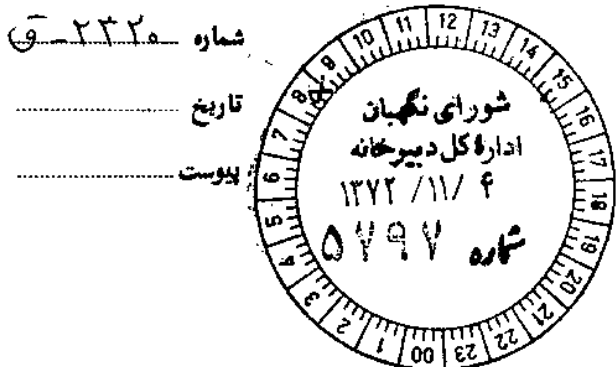 شماره ۲۳۲۰-ق
تاریخ
پیوست
شورای نگهبان
ادارهٔ کل دبیرخانه
۱۳۷۲ /۱۱/ ۴
شماره ۵۷۹۷
00 1 2 3 4 5 6 7 8 9 10 11 12 13 14 15 16 17 18 19 20 21 22 23